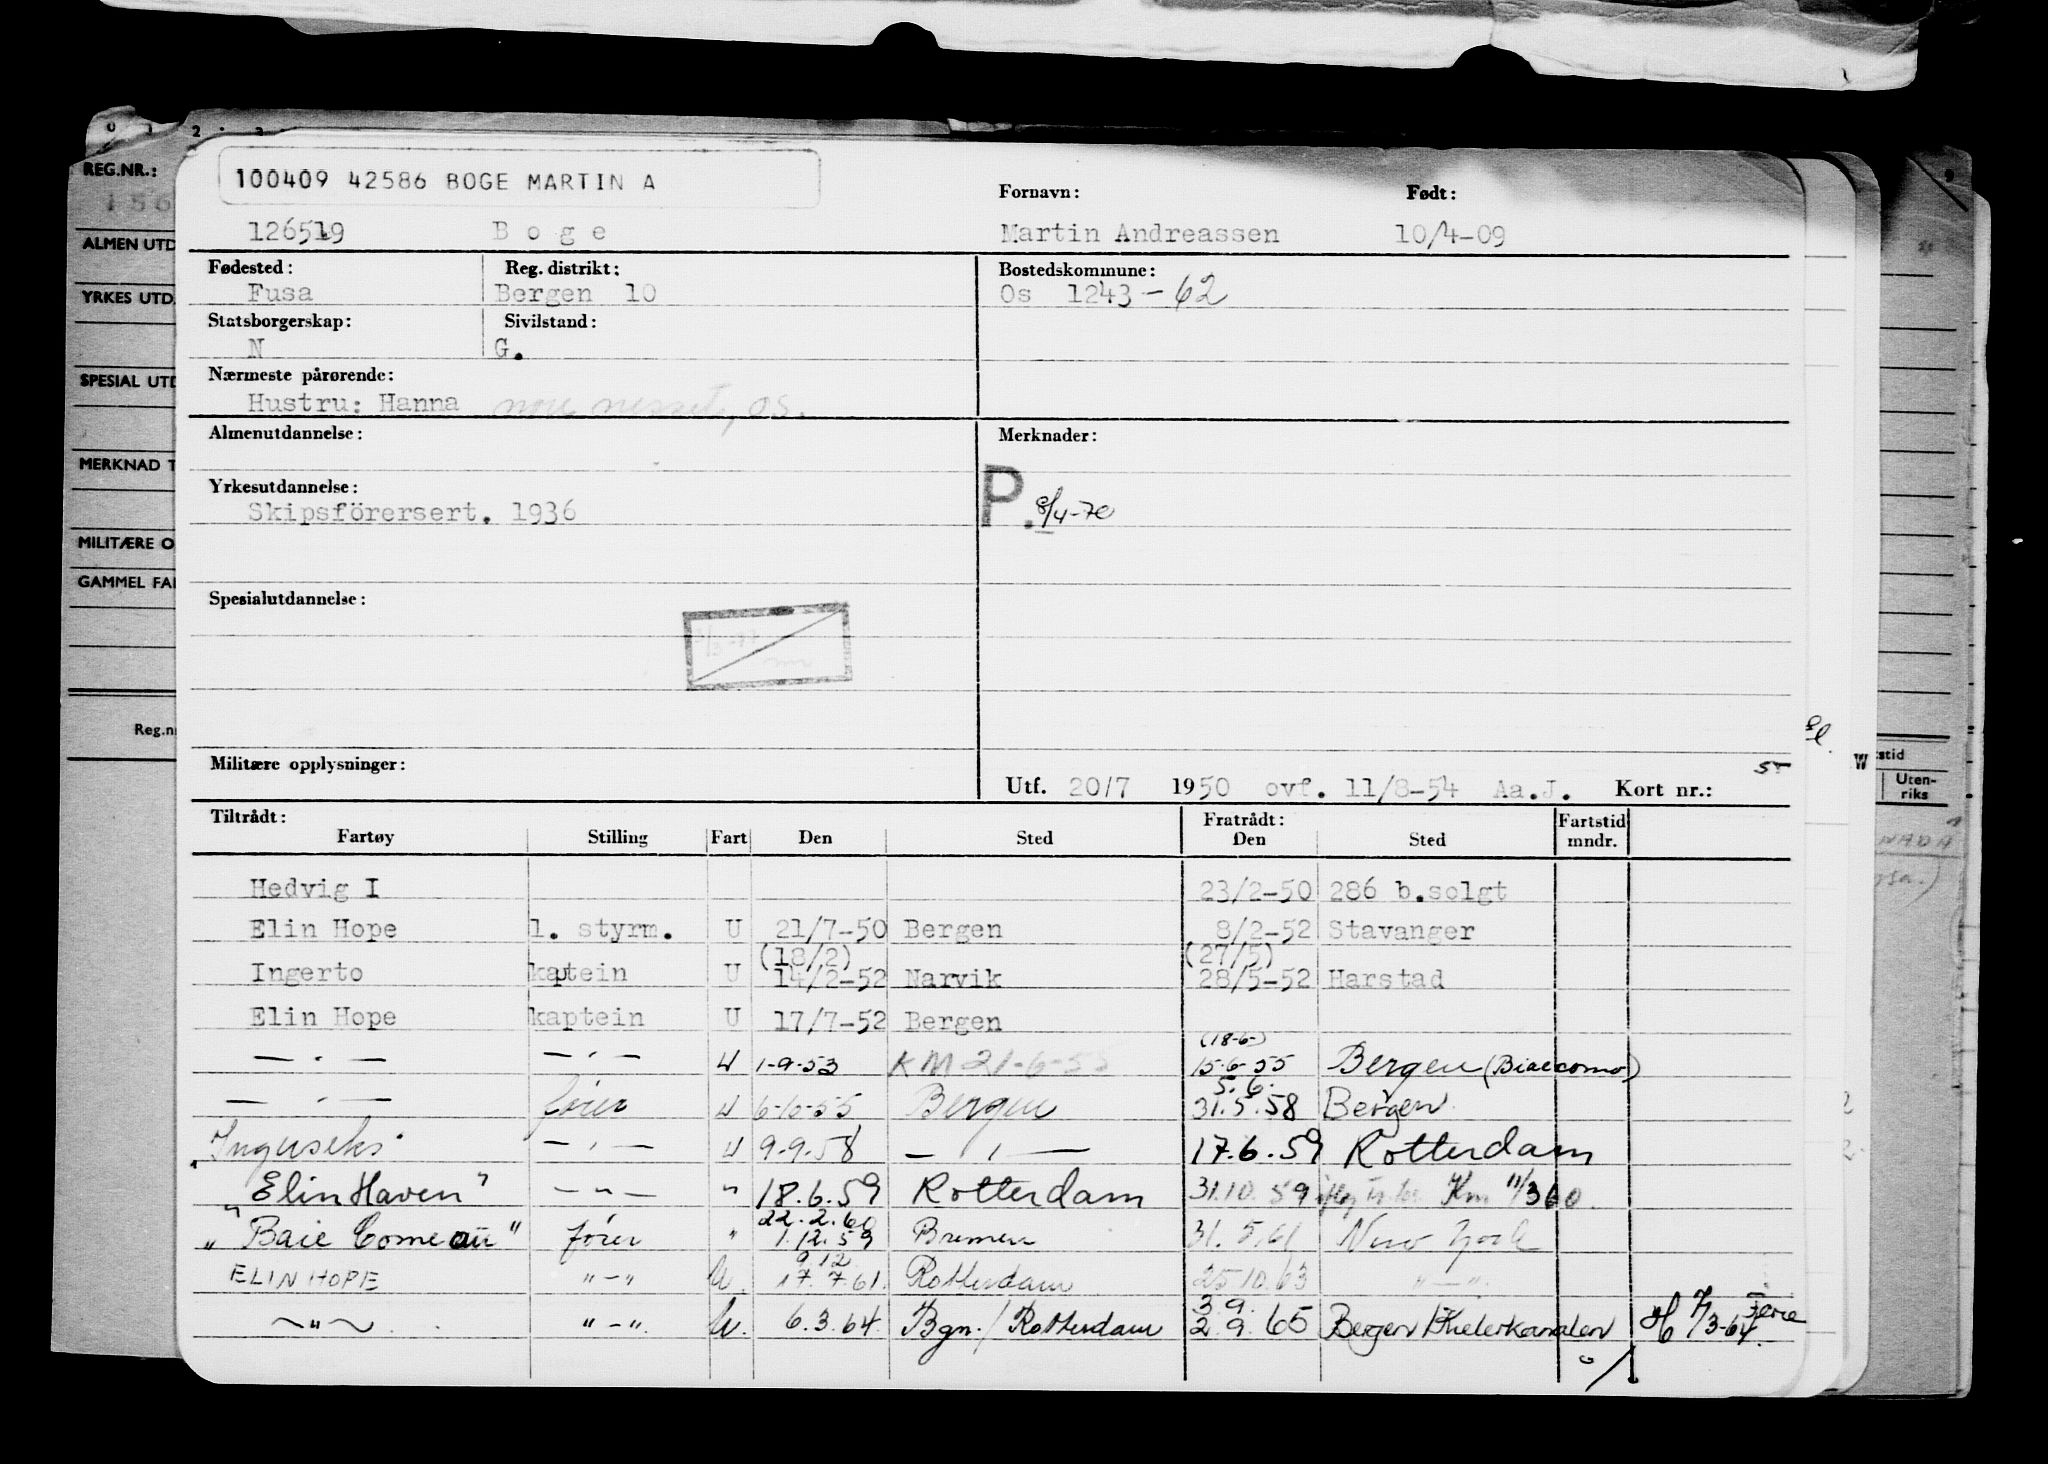 0 1 2 3
9
REG.NR.:
ALMEN UTD
YRKES UTD.
SPESIAL UTD
MERKNAD T
MILITÆRE O
GAMMEL FA
Reg.n
100409 42586 BOGE MARTIN A
Fornavn: Født:
126519 Boge Martin Andreassen 10/4-09
Fødested: Reg. distrikt: Bostedskommune:
Fusa Bergen 10 Os 1243-62
Statsborgerskap: Sivilstand:
N G.
Nærmeste pårørende:
Hustru: Hanna Os.
Almenutdannelse: Merknader:
Yrkesutdannelse: P. 8/4-70
Skipsförersert. 1936
Spesialutdannelse:
Militære opplysninger:
Utf. 20/7 1950 ovf. 11/8-54 Aa.J. Kort nr.:
W
stid
Uten-
riks
NADA
Tiltrådt: Fratrådt: Fartstid
Fartøy Stilling Fart Den Sted Den Sted mndr.
Hedvig I 23/2-50 286 b.solgt
Elin Hope 1. styrm. U 21/7-50 Bergen 8/2-52 Stavanger
(18/2) (27/5)
Ingerto kaptein U 14/2-52 Narvik 28/5-52 Harstad
Elin Hope kaptein U 17/7-52 Bergen
(18-6-)
— · — — · — U 1-9-53 KM 21-6-55 15-6-55 Bergen
5.6.
— · — fører U 6-10-55 Bergen 31.5.58 Bergen
— · — U 9-9-58 — · — 17.6.59 Rotterdam
"Elin Haven" — " — " 18.6.59 Rotterdam 31.10.59 Km 11/360.
22.2.60
"Baie Comeau" fører " 1.12.59 Bremen 31.5.61 New York
9.12
ELIN HOPE "-" U. 17.7.61. Rotterdam 25.10.63 "-"
3.9.
~"~ "-" U. 6.3.64. Bgn./Rotterdam 2.9.65 Bergen/Kielerkanalen 7/3-64.